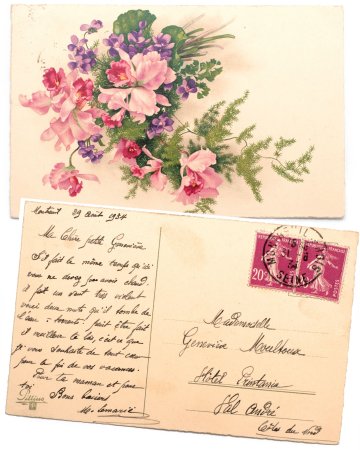 Montreuil 29 Août 1934
Ma Chère petite Geneviève
S'il fait le même temps qu'ici
vous ne devez pas avoir chaud.
il fait un vent très violent
voici deux nuits qu'il tombe de
l'eau
fait être fait
il meilleur là bas, c'est ce que
je vous souhaite de tout cœur
pour la fin de vos vacances.
Pour ta maman et pour
toi Bons baisers
M.
MONTREUIL
SEINE
20c
Mademoiselle
Geneviève
Hôtel Printania
Val André
Côtes du Nord